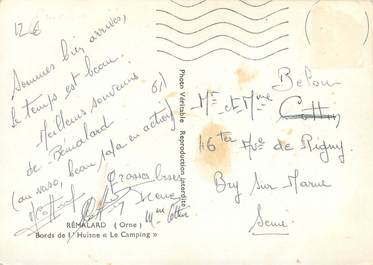 12 €
Sommes bien arrivés,
le temps est beau.
Meilleurs souvenirs
de Rémalard
(au verso, beau sofa en action)
Grosses bises
RÉMALARD (Orne)
Bords de l'Huisne « Le Camping »
Photo Véritable Reproduction interdite
Mr et Mme
46 Ter Ave de Rigny
Bry sur Marne
Seine